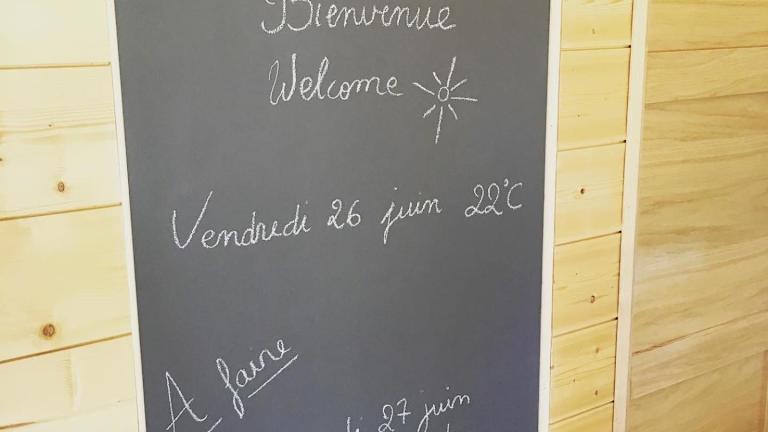 Bienvenue
Welcome
Vendredi 26 juin 22°C
A faire
27 juin